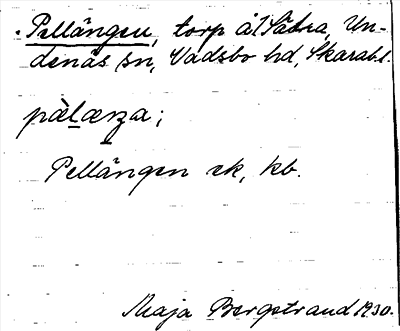 Pellängen, torp å/Sätra, Un-
denäs sn, Vadsbo hd, Skarab.l.
pàlæŋa;
Pellängen ek, kb.
Maja Bergstrand 1930.